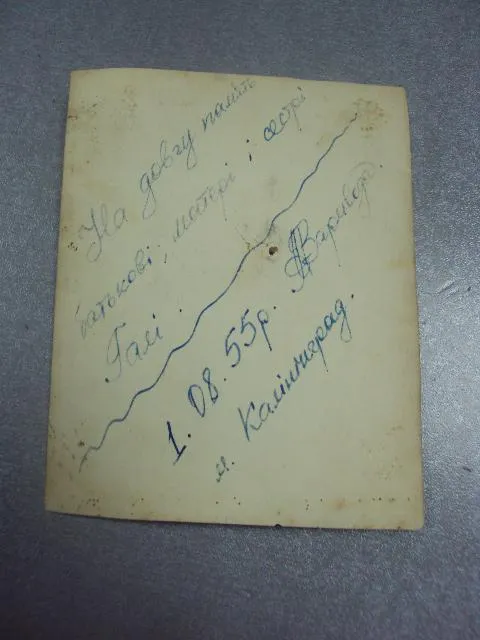 На довгу память
батькові, матері і сестрі
Галі.
1. 08. 55р.
м. Калінінград.